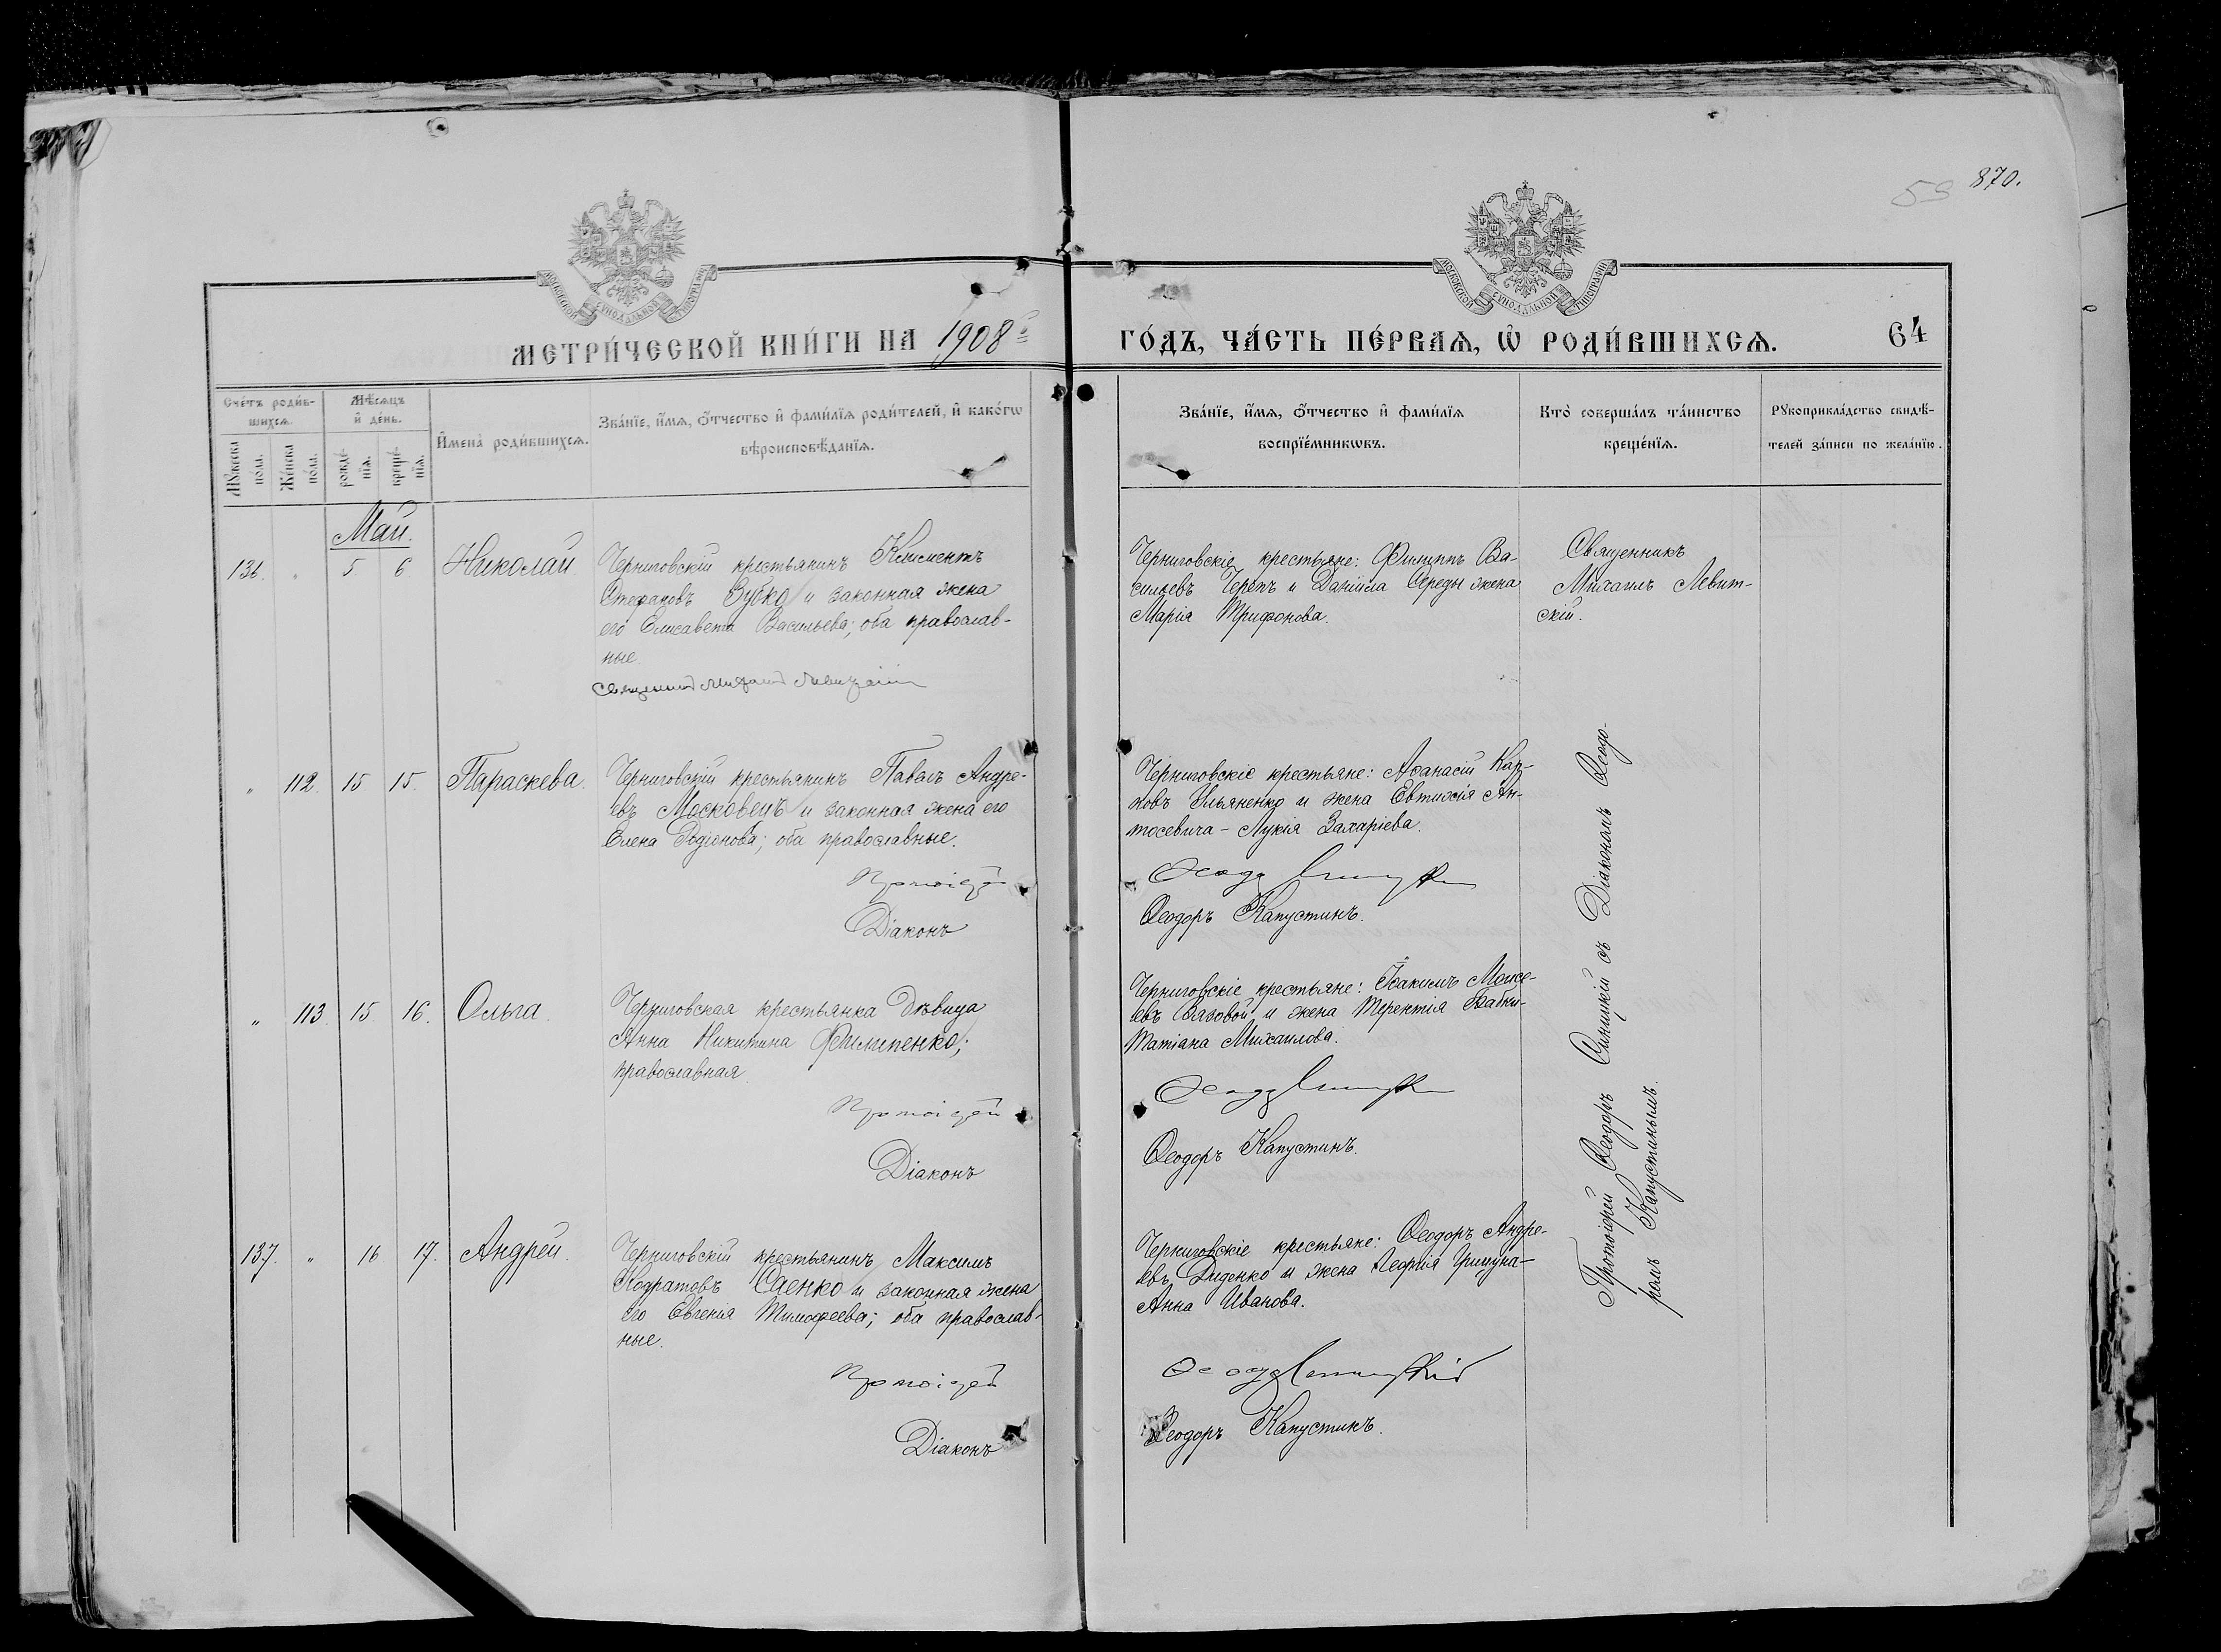 870.
53
МОСКОВСКОЙ СѴНОДАЛЬНОЙ ТИПОГРАФІИ
МОСКОВСКОЙ СѴНОДАЛЬНОЙ ТИПОГРАФІИ
МЕТРИ́ЧЕСКОЙ КНИ́ГИ НА 1908 г.
ГО́ДЪ, ЧА́СТЬ ПЕ́РВАѦ, Ѽ РОДИ́ВШИХСѦ.
64
Сче́тъ роди́в-
шихсѧ.
Мꙋ́жеска
по́ла.
Же́нска
по́ла.
Мѣ́сѧцъ
и҆ де́нь.
рожде́-
нїѧ.
креще́-
нїѧ.
И҆мена̀ роди́вшихсѧ.
Зва́нїе, и҆́мѧ, ѻ҆́тчество и҆ фами́лїѧ роди́телей, и҆ како́гѡ
вѣроисповѣ́данїѧ.
Зва́нїе, и҆́мѧ, ѻ҆́тчество и҆ фами́лїѧ
воспрїе́мникѡвъ.
Кто̀ соверша́лъ та́инство
креще́нїѧ.
Рꙋкоприкла́дство свидѣ́-
телей за́писи по жела́нїю.
Май.
136. " 5. 6. Николай.
Черниговскій крестьянинъ Климентъ
Стефановъ Зубко и законная жена
его Елисавета Васильева; оба православ-
ные.
Священникъ Михаилъ Левитскій
Черниговскіе крестьяне: Филиппъ Ва-
сильевъ Черепъ и Даніила Середы жена
Марія Трифонова.
Священникъ
Михаилъ Левит-
скій.
" 112. 15. 15. Параскева.
Черниговскій крестьянинъ Павелъ Андре-
евъ Московецъ и законная жена его
Елена Родіонова; оба православные.
Протоіерей
Діаконъ
Черниговскіе крестьяне: Аѳанасій Кар-
повъ Ульяненко и жена Евтихія Ан-
тосевича - Лукія Захаріева.
Ѳеодоръ Синицкій
Ѳеодоръ Капустинъ.
" 113. 15 16. Ольга.
Черниговская крестьянка дѣвица
Анна Никитина Филипенко;
православная.
Протоіерей
Діаконъ
Черниговскіе крестьяне: Іоакимъ Моисе-
евъ и жена Терентія
Татіана Михаилова.
Ѳеодоръ Синицкій
Ѳеодоръ Капустинъ.
137. " 16 17. Андрей.
Черниговскій крестьянинъ Максимъ
Кодратовъ Саенко и законная жена
его Евгенія Тимофеева; оба православ-
ные.
Протоіерей
Діаконъ
Черниговскіе крестьяне: Ѳеодоръ Андре-
евъ Диденко и жена Георгія
Анна Иванова.
Ѳеодоръ Синицкій
Ѳеодоръ Капустинъ.
Протоіерей Ѳеодоръ Синицкій съ Діакономъ Ѳеодо-
ромъ Капустинымъ.